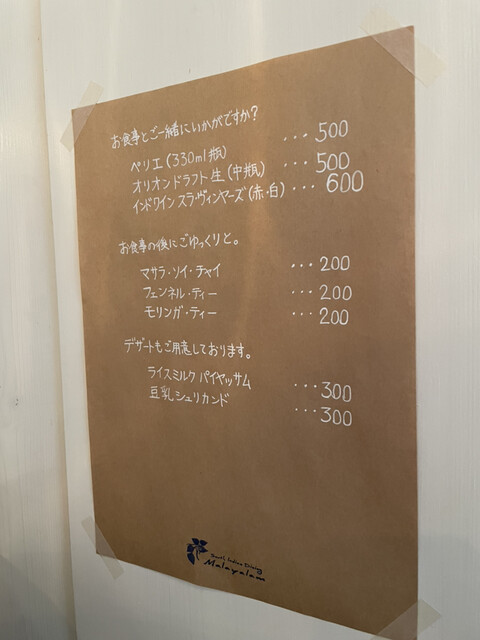 お食事とご一緒にいかがですか?
ペリエ(330ml瓶) ・・・500
オリオンドラフト生(中瓶) ・・・500
インドワイン スラ・ヴィンヤーズ(赤・白) ・・・600
お食事の後にごゆっくりと。
マサラ・ソイ・チャイ ・・・200
フェンネル・ティー ・・・200
モリンガ・ティー ・・・200
デザートもご用意しております。
ライスミルク パイヤッサム ・・・300
豆乳シュリカンド ・・・300
South Indian Dining
Malayalam